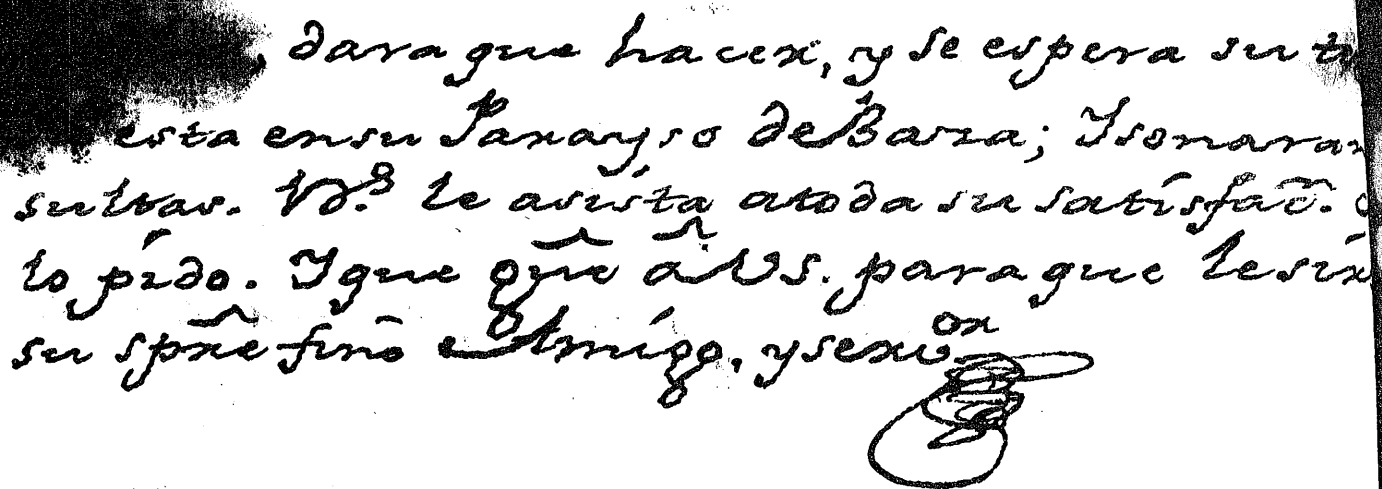 , dara que hacer, y se espera su
esta en su Parayso de Baza; Y sonaran
sultas. Ds. le asista a toda su satisfaōn.
lo pido. Y que gue̅ a̅ Vs. para que le sir
su spre̅ fino Amigo, y servor.